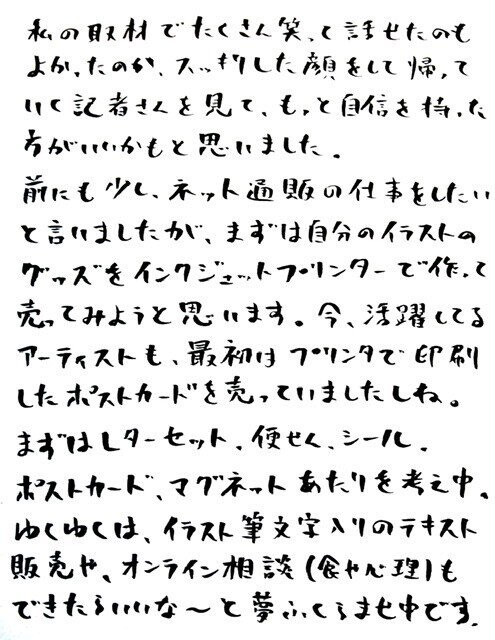 私の取材でたくさん笑って話せたのも
よかったのか、スッキリした顔をして帰って
いく記者さんを見て、もっと自信を持った
方がいいかもと思いました。
前にも少し、ネット通販の仕事をしたい
と言いましたが、まずは自分のイラストの
グッズをインクジェットプリンターで作って
売ってみようと思います。今、活躍してる
アーティストも、最初はプリンタで印刷
したポストカードを売っていましたしね。
まずはレターセット、便せん、シール、
ポストカード、マグネットあたりを考え中。
ゆくゆくは、イラスト筆文字入りのテキスト
販売や、オンライン相談(食や心理)も
できたらいいな〜と夢ふくらませ中です。